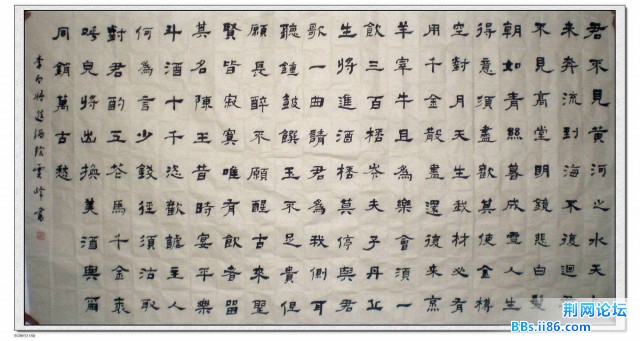 君不見黃河之水天上
来奔流到海不復迴君
不見高堂明鏡悲白髮
朝如青絲暮成雪人生
得意須盡歡莫使金樽
空對月天生我材必有
用千金散盡還復來烹
羊宰牛且為樂會須一
飲三百桮岑夫子丹丘
生將進酒桮莫停與君
歌一曲請君為我側耳
聽鐘鼓饌玉不足貴但
願長醉不願醒古來聖
賢皆寂寞唯有飲者留
其名陳王昔時宴平樂
斗酒十千恣歡謔主人
何為言少錢徑須沽取
對君酌五花馬千金裘
呼兒將出換美酒與爾
同銷萬古愁
李白將進酒 雲峰書
荆网论坛
BBs.ii86.com